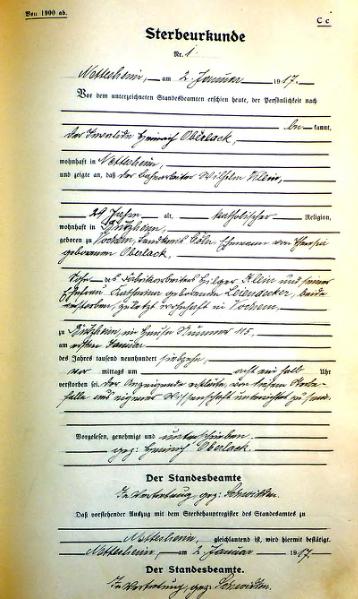 Von 1900 ab.
C c
Sterbeurkunde
Nr. 1
Nettersheim, am 2. Januar 1917.
Vor dem unterzeichneten Standesbeamten erschien heute, der Persönlichkeit nach
be kannt,
der Invalide Heinrich Oberlack,
wohnhaft in Nettersheim,
und zeigte an, daß der Wilhelm Klein,
29 Jahre alt, katholischer Religion,
wohnhaft in
geboren zu Vochem, Landkreis Köln, Ehemann von
geborenen Oberlack,
Sohn des Fabrikarbeiters Hilger Klein und seiner
Ehefrau geborenen beide
verstorben, zuletzt wohnhaft in Vochem,
zu im Hause Nummer 115,
am ersten Januar
des Jahres tausend neunhundert siebzehn
vor mittags um acht ein halb Uhr
verstorben sei. Der Anzeigende erklärte, von diesem Sterbe-
falle aus eigener Wissenschaft unterrichtet zu sein.
Vorgelesen, genehmigt und unterschrieben.
gez. Heinrich Oberlack.
Der Standesbeamte
In Vertretung, gez.
Daß vorstehender Auszug mit dem Sterbehauptregister des Standesamtes zu
Nettersheim gleichlautend ist, wird hiermit bestätigt.
Nettersheim, am 2. Januar 1917.
Der Standesbeamte.
In Vertretung, gez.